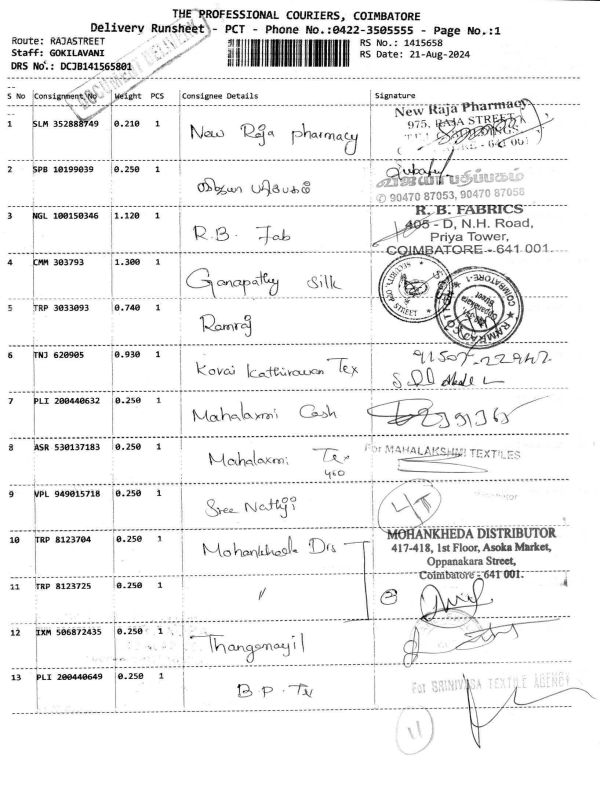 THE PROFESSIONAL COURIERS, COIMBATORE
Delivery Runsheet - PCT - Phone No.:0422-3505555 - Page No.:1
Route: RAJASTREET
RS No.: 1415658
Staff: GOKILAVANI
RS Date: 21-Aug-2024
DRS No.: DCJB141565801
DOCUMENT DELIVERY
S No Consignment No Weight PCS Consignee Details Signature
1 SLM 352888749 0.210 1 New Raja pharmacy
New Raja Pharmacy
975, RAJA STREET
2 SPB 10199039 0.250 1 விஜயா பதிப்பகம்
விஜயா பதிப்பகம்
✆ 90470 87053, 90470 87058
3 NGL 100150346 1.120 1 R.B. Fab
R. B. FABRICS
405 - D, N.H. Road,
Priya Tower,
COIMBATORE - 641 001.
4 CMM 303793 1.300 1 Ganapathy Silk
5 TRP 3033093 0.740 1 Ramraj
6 TNJ 620905 0.930 1 Kovai Kathiravan Tex
91507-22947
7 PLI 200440632 0.250 1 Mahalaxmi Cash
8 ASR 530137183 0.250 1 Mahalaxmi Tex
460
For MAHALAKSHMI TEXTILES
9 VPL 949015718 0.250 1 Sree Nathji
10 TRP 8123704 0.250 1 Mohankheda Drs
MOHANKHEDA DISTRIBUTOR
417-418, 1st Floor, Asoka Market,
Oppanakara Street,
Coimbatore - 641 001.
11 TRP 8123725 0.250 1 "
12 IXM 506872435 0.250 1 Thangamayil
13 PLI 200440649 0.250 1 B.P. Tex
For SRINIVASA TEXTILE AGENCY
11